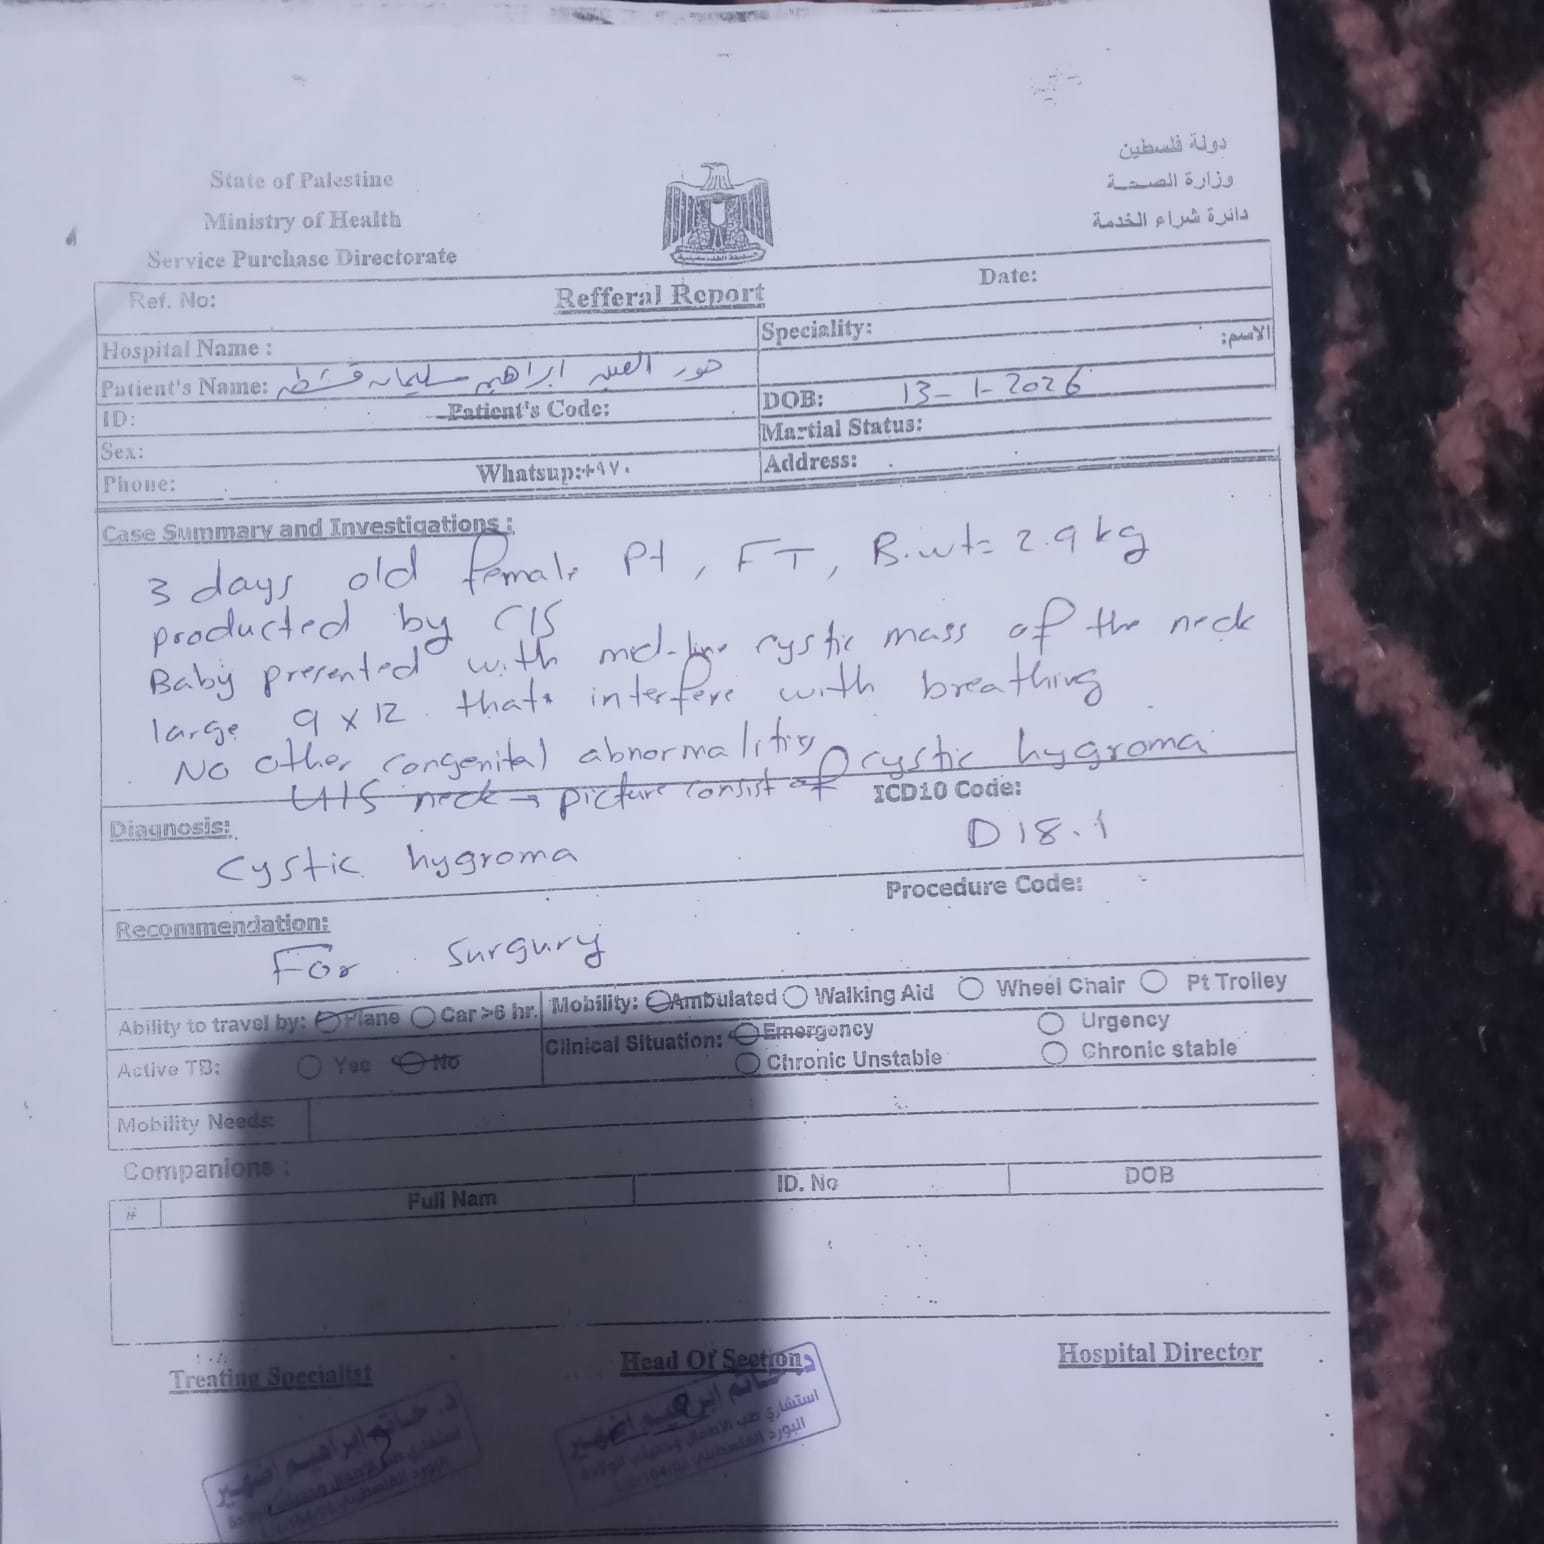 State of Palestine
Ministry of Health
Service Purchase Directorate
دولة فلسطين
وزارة الصحة
دائرة شراء الخدمة
Ref. No:
Refferal Report
Date:
Hospital Name :
Speciality:
الاسم:
Patient's Name: حور العين ابراهيم سليمان قشطه
DOB: 13-1-2026
ID:
Patient's Code:
Martial Status:
Sex:
Address:
Phone:
Whatsup:+٩٧٠
Case Summary and Investigations :
3 days old female Pt, FT, B.wt= 2.9 kg
producted by C/S
Baby presented with mid-line cystic mass of the neck
large 9 x 12 that interfere with breathing
No other congenital abnormalities
U/S neck → picture consist of cystic hygroma
Diagnosis:
ICD10 Code:
Cystic hygroma
D18.1
Procedure Code:
Recommendation:
For surgury
Ability to travel by: Plane Car >6 hr.
Mobility: Ambulated Walking Aid Wheel Chair Pt Trolley
Active TB: Yes No
Clinical Situation: Emergency Urgency
Chronic Unstable Chronic stable
Mobility Needs:
Companions :
# Full Nam ID. No DOB
Treating Specialist
Head Of Section
Hospital Director
د. حاتم ابراهيم اضهير
استشاري طب الاطفال وحديثي الولادة
البورد الفلسطيني
د. حاتم ابراهيم اضهير
استشاري طب الاطفال وحديثي الولادة
البورد الفلسطيني